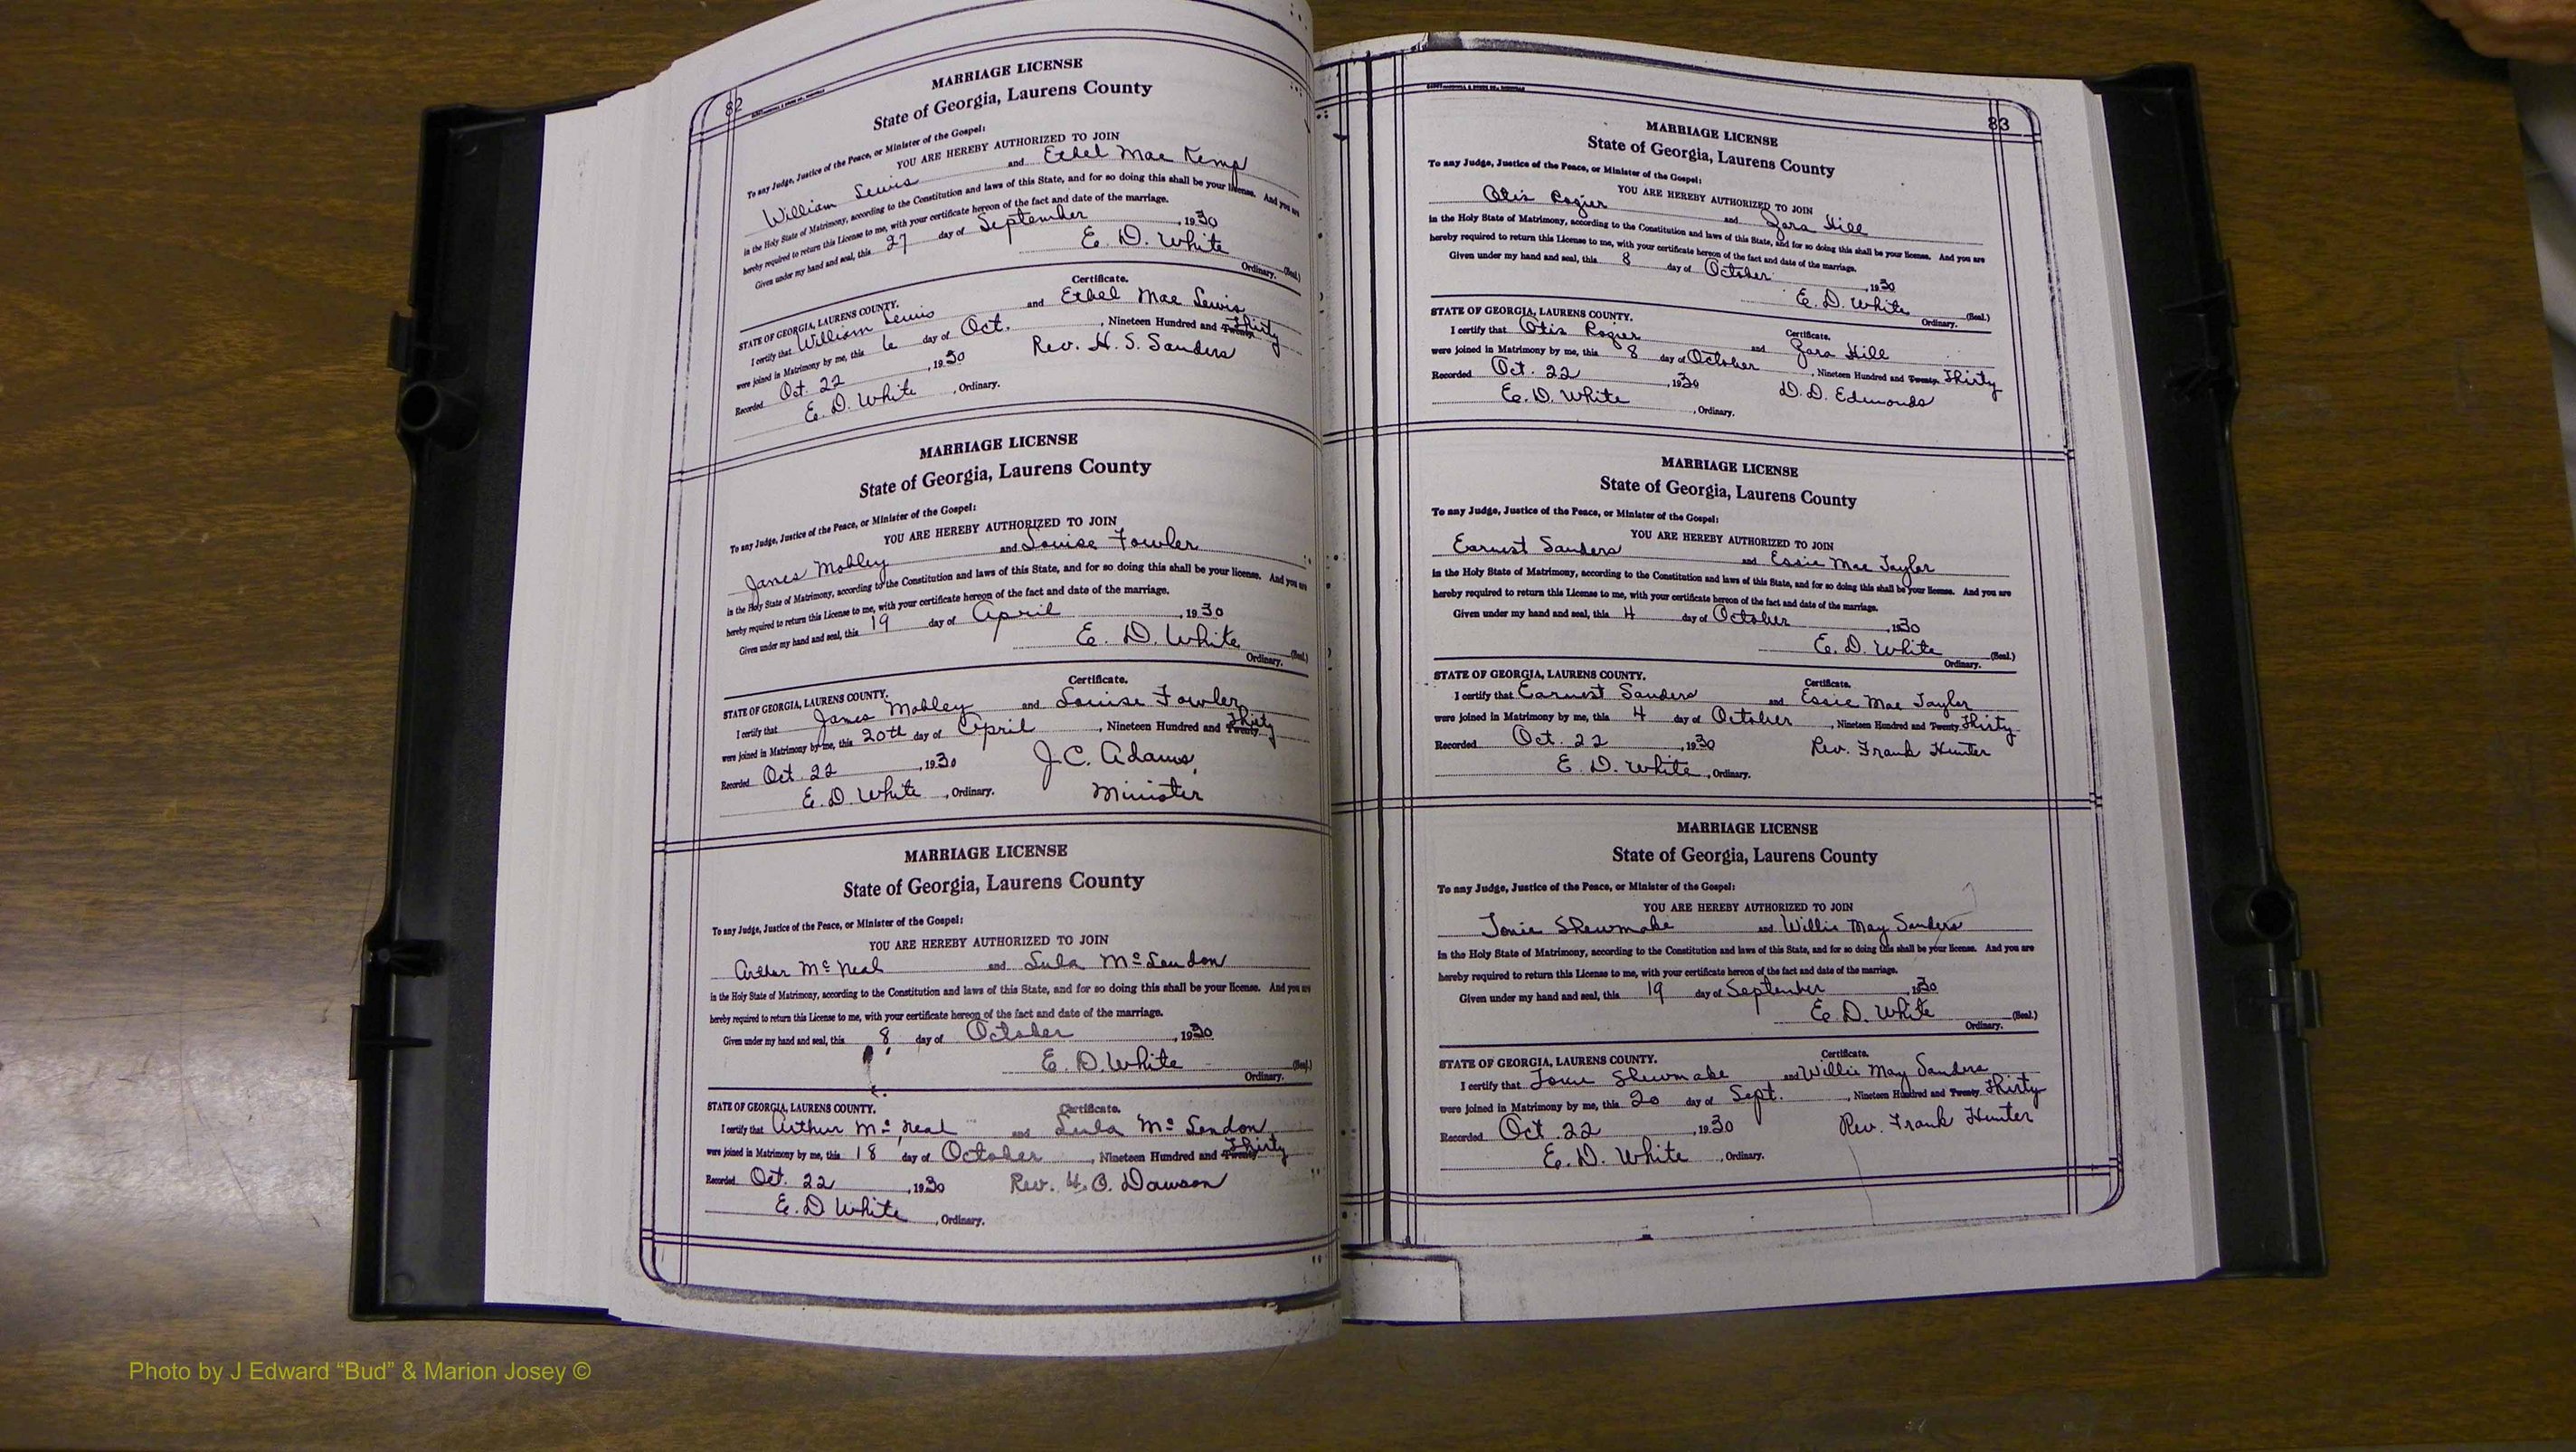 82
MARRIAGE LICENSE
State of Georgia, Laurens County
To any Judge, Justice of the Peace, or Minister of the Gospel:
YOU ARE HEREBY AUTHORIZED TO JOIN
William Lewis and Ethel Mae Kemp
in the Holy State of Matrimony, according to the Constitution and laws of this State, and for so doing this shall be your license. And you are
hereby required to return this License to me, with your certificate hereon of the fact and date of the marriage.
Given under my hand and seal, this 27 day of September, 1930
E. D. White (Seal.)
Ordinary.
Certificate.
STATE OF GEORGIA, LAURENS COUNTY.
I certify that William Lewis and Ethel Mae Lewis
were joined in Matrimony by me, this 6 day of Oct., Nineteen Hundred and Twenty Thirty
Recorded Oct. 22, 1930 Rev. H. S. Sanders
E. D. White, Ordinary.
MARRIAGE LICENSE
State of Georgia, Laurens County
To any Judge, Justice of the Peace, or Minister of the Gospel:
YOU ARE HEREBY AUTHORIZED TO JOIN
James Mobley and Louise Fowler
in the Holy State of Matrimony, according to the Constitution and laws of this State, and for so doing this shall be your license. And you are
hereby required to return this License to me, with your certificate hereon of the fact and date of the marriage.
Given under my hand and seal, this 19 day of April, 1930
E. D. White (Seal.)
Ordinary.
Certificate.
STATE OF GEORGIA, LAURENS COUNTY.
I certify that James Mobley and Louise Fowler
were joined in Matrimony by me, this 20th day of April, Nineteen Hundred and Twenty Thirty
Recorded Oct. 22, 1930 J. C. Adams,
E. D. White, Ordinary. Minister
MARRIAGE LICENSE
State of Georgia, Laurens County
To any Judge, Justice of the Peace, or Minister of the Gospel:
YOU ARE HEREBY AUTHORIZED TO JOIN
Arthur McNeal and Lula McLendon
in the Holy State of Matrimony, according to the Constitution and laws of this State, and for so doing this shall be your license. And you are
hereby required to return this License to me, with your certificate hereon of the fact and date of the marriage.
Given under my hand and seal, this 8 day of October, 1930
E. D. White (Seal.)
Ordinary.
STATE OF GEORGIA, LAURENS COUNTY. Certificate.
I certify that Arthur McNeal and Lula McLendon
were joined in Matrimony by me, this 18 day of October, Nineteen Hundred and Twenty Thirty
Recorded Oct. 22, 1930 Rev. H. O. Dawson
E. D. White, Ordinary.
83
MARRIAGE LICENSE
State of Georgia, Laurens County
To any Judge, Justice of the Peace, or Minister of the Gospel:
YOU ARE HEREBY AUTHORIZED TO JOIN
Otis Rozier and Zara Hill
in the Holy State of Matrimony, according to the Constitution and laws of this State, and for so doing this shall be your license. And you are
hereby required to return this License to me, with your certificate hereon of the fact and date of the marriage.
Given under my hand and seal, this 8 day of October, 1930
E. D. White (Seal.)
Ordinary.
STATE OF GEORGIA, LAURENS COUNTY. Certificate.
I certify that Otis Rozier and Zara Hill
were joined in Matrimony by me, this 8 day of October, Nineteen Hundred and Twenty Thirty
Recorded Oct. 22, 1930 D. D. Edmonds
E. D. White, Ordinary.
MARRIAGE LICENSE
State of Georgia, Laurens County
To any Judge, Justice of the Peace, or Minister of the Gospel:
YOU ARE HEREBY AUTHORIZED TO JOIN
Earnest Sanders and Essie Mae Taylor
in the Holy State of Matrimony, according to the Constitution and laws of this State, and for so doing this shall be your license. And you are
hereby required to return this License to me, with your certificate hereon of the fact and date of the marriage.
Given under my hand and seal, this 4 day of October, 1930
E. D. White (Seal.)
Ordinary.
STATE OF GEORGIA, LAURENS COUNTY. Certificate.
I certify that Earnest Sanders and Essie Mae Taylor
were joined in Matrimony by me, this 4 day of October, Nineteen Hundred and Twenty Thirty
Recorded Oct. 22, 1930 Rev. Frank Hunter
E. D. White, Ordinary.
MARRIAGE LICENSE
State of Georgia, Laurens County
To any Judge, Justice of the Peace, or Minister of the Gospel:
YOU ARE HEREBY AUTHORIZED TO JOIN
Tonie Shewmake and Willie May Sanders
in the Holy State of Matrimony, according to the Constitution and laws of this State, and for so doing this shall be your license. And you are
hereby required to return this License to me, with your certificate hereon of the fact and date of the marriage.
Given under my hand and seal, this 19 day of September, 1930
E. D. White (Seal.)
Ordinary.
STATE OF GEORGIA, LAURENS COUNTY. Certificate.
I certify that Tonie Shewmake and Willie May Sanders
were joined in Matrimony by me, this 20 day of Sept., Nineteen Hundred and Twenty Thirty
Recorded Oct. 22, 1930 Rev. Frank Hunter
E. D. White, Ordinary.
Photo by J Edward “Bud” & Marion Josey ©